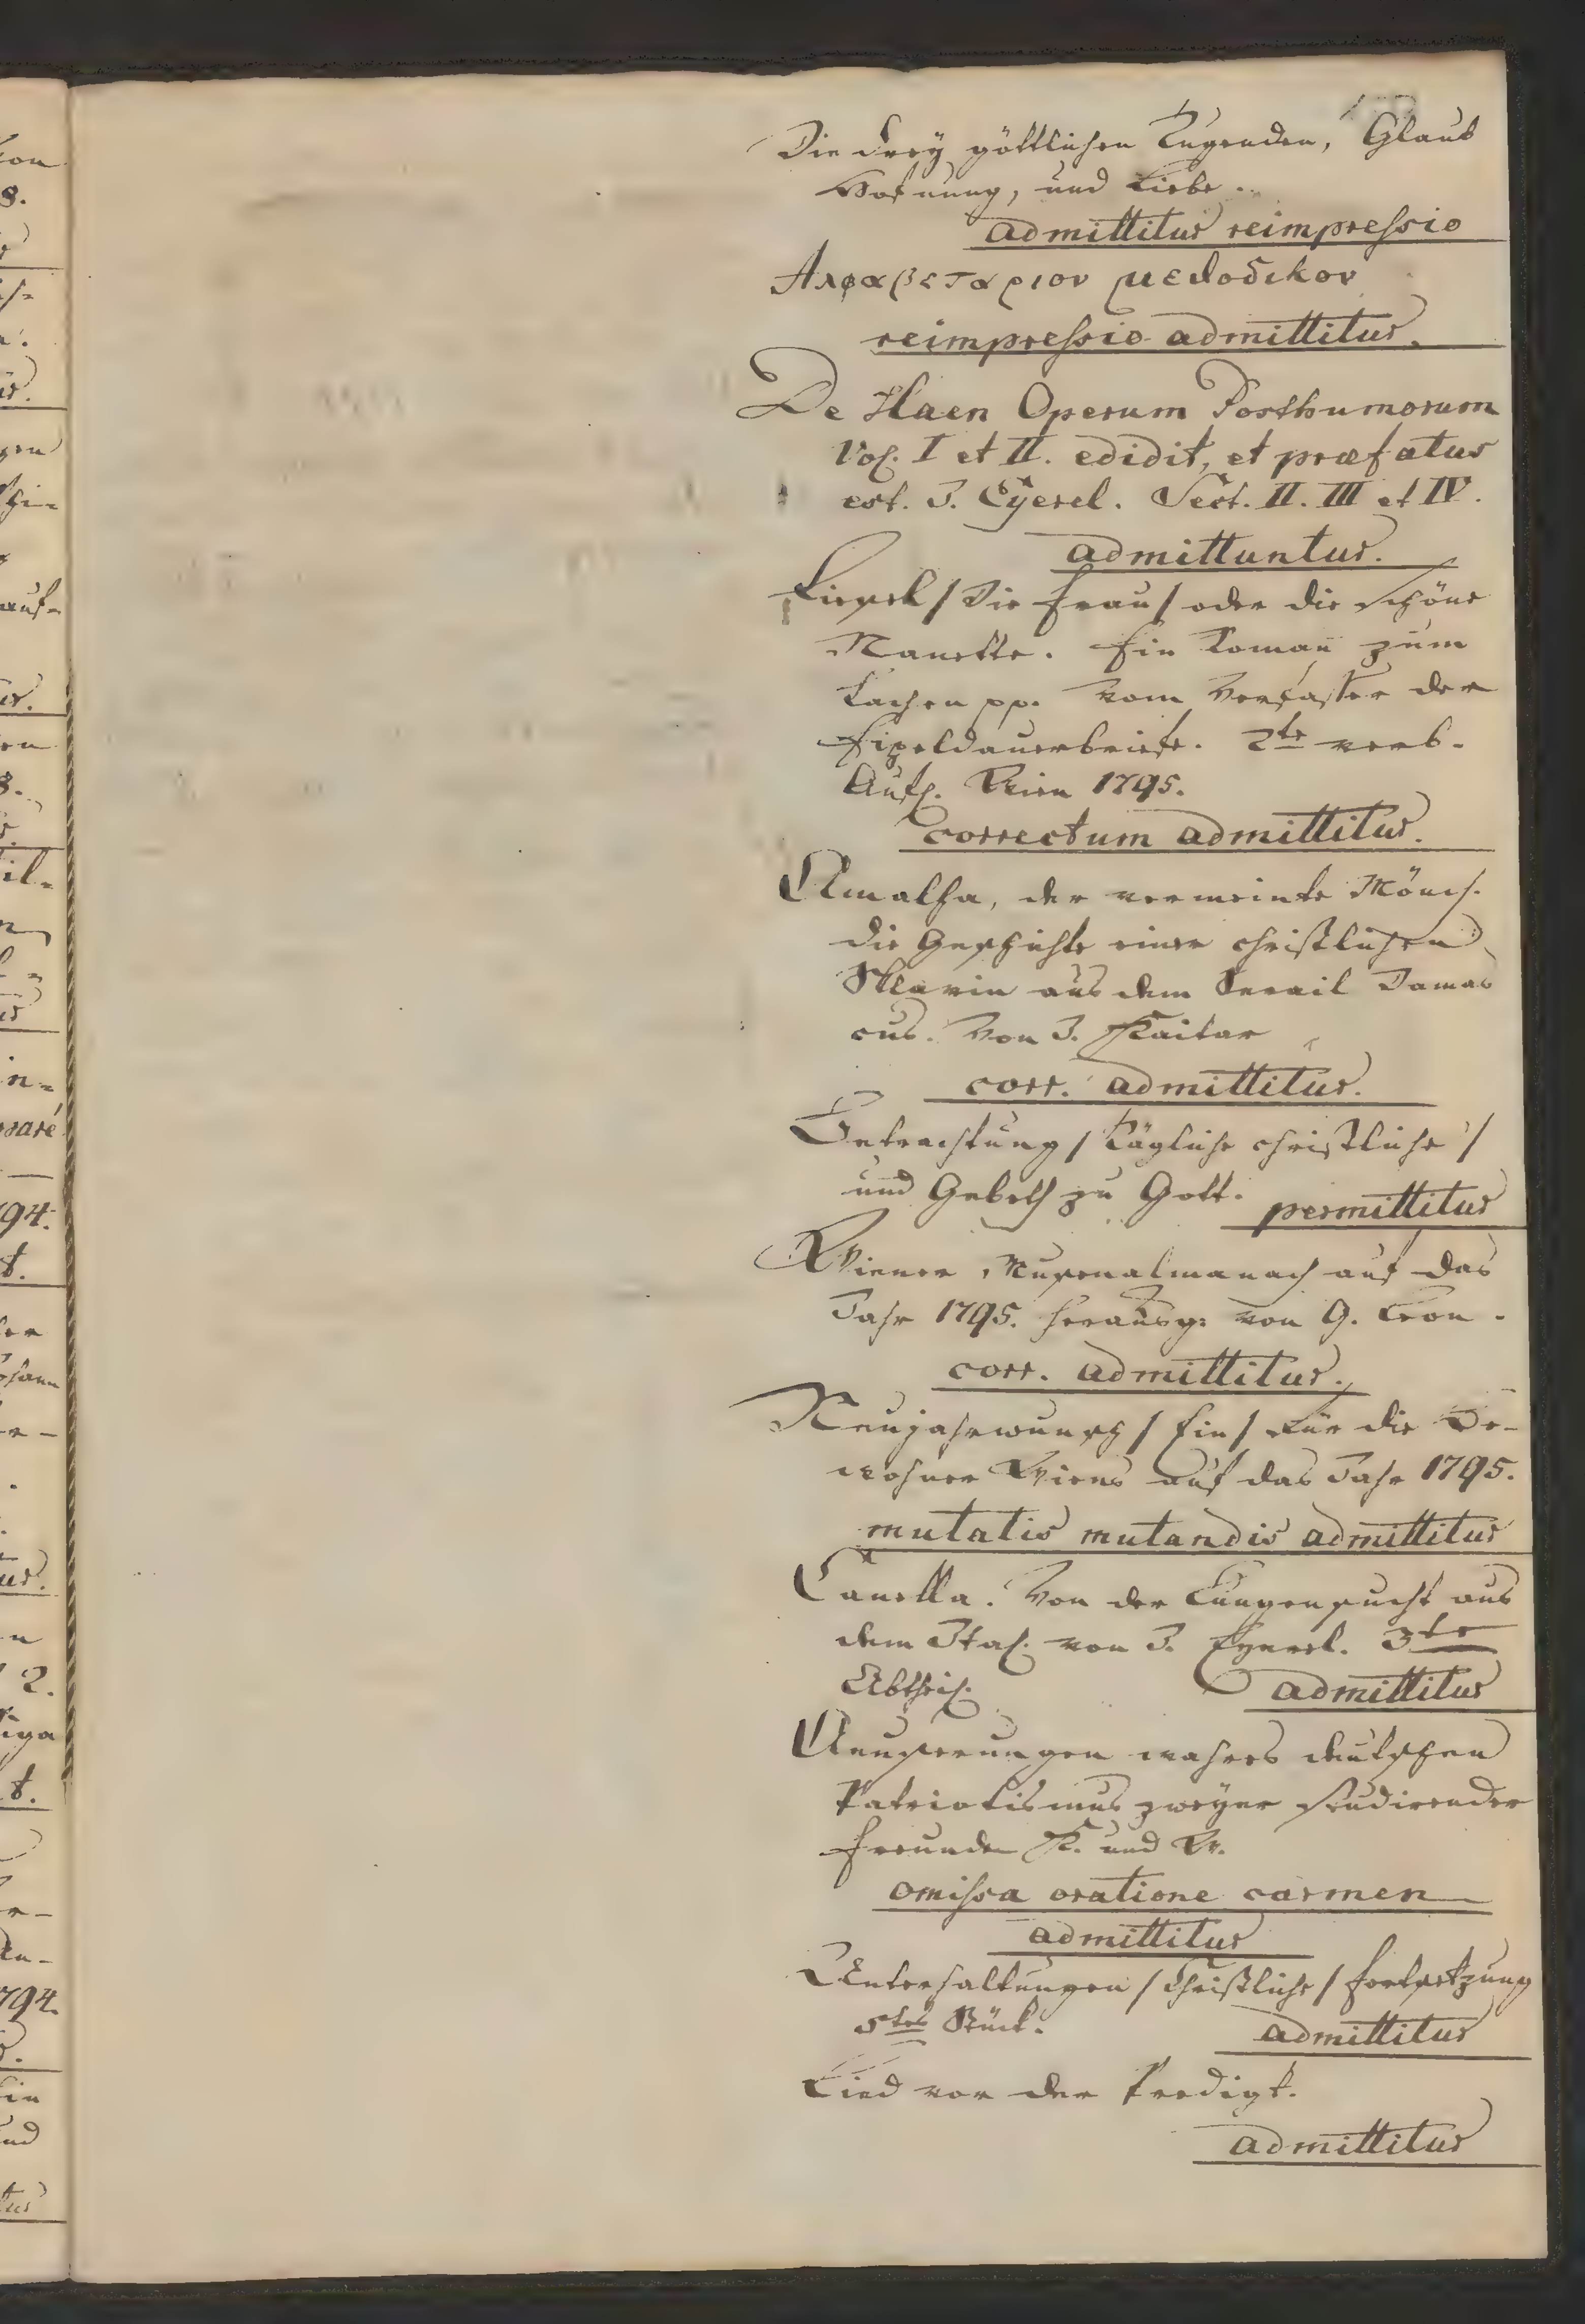 Die drey göttlichen Tugenden, Glaub
Hofnung, und Liebe.
admittitur reimpressio
Αλφαβεταριον μεθοδικον
reimpressio admittitur.
De Haen Operum Posthumorum
Vol. I et II. edidit, et præfatus
est. J. Eyerel. Sect. II. III et IV.
admittuntur.
Liesel / Die Frau / oder die schöne
Nanette. Ein Roman zum
Lachen pp. Vom Verfasser der
Eipeldauerbriefe. 2te verb.
Aufl. Wien 1795.
correctum admittitur.
Amalfa, der vermeinte Mönch.
die Geschichte einer christlichen
Sklavin aus dem Serail Damas
cus. Von J. Kaitar
corr. admittitur.
Betrachtung / Tägliche christliche /
und Gebeth zu Gott.
permittitur
Wiener Musenalmanach auf das
Jahr 1795. herausg: von G. Leon.
corr. admittitur.
Neujahrwunsch / Ein / für die Be-
wohner Wiens auf das Jahr 1795.
mutatis mutandis admittitur
Canella. Von der Lungensucht aus
dem Ital. von J. Eyerel. 3te
Abtheil.
admittitur
Aeusserungen wahres deutschen
Patriotismus zweyer studirender
Freunde K. und W.
omissa oratione carmen
admittitur
Unterhaltungen / Christliche / Fortsetzung
5tes Stück.
admittitur
Lied vor der Predigt.
admittitur